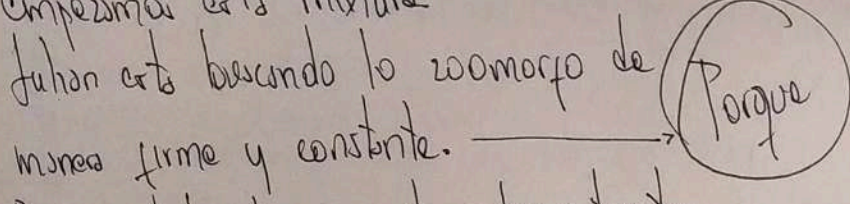 Empezamos esta mixtura
Julian esta buscando lo zoomorfo de
manera firme y constante. Porque